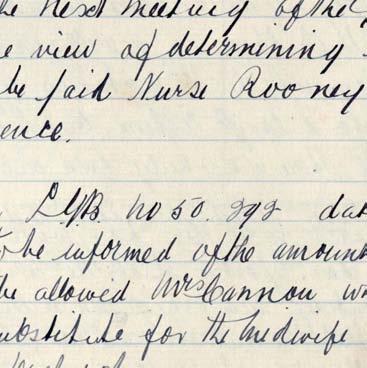 he next meeting of the
e view of determining
be paid Nurse Rooney
ence.
LGB no 50.292 dat
to be informed of the amount
be allowed Mrs Cannon w
ubstitute for the midwife